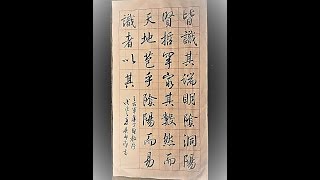 皆識其端明陰洞陽
賢哲罕窮其數然而
天地苞乎陰陽而易
識者以其